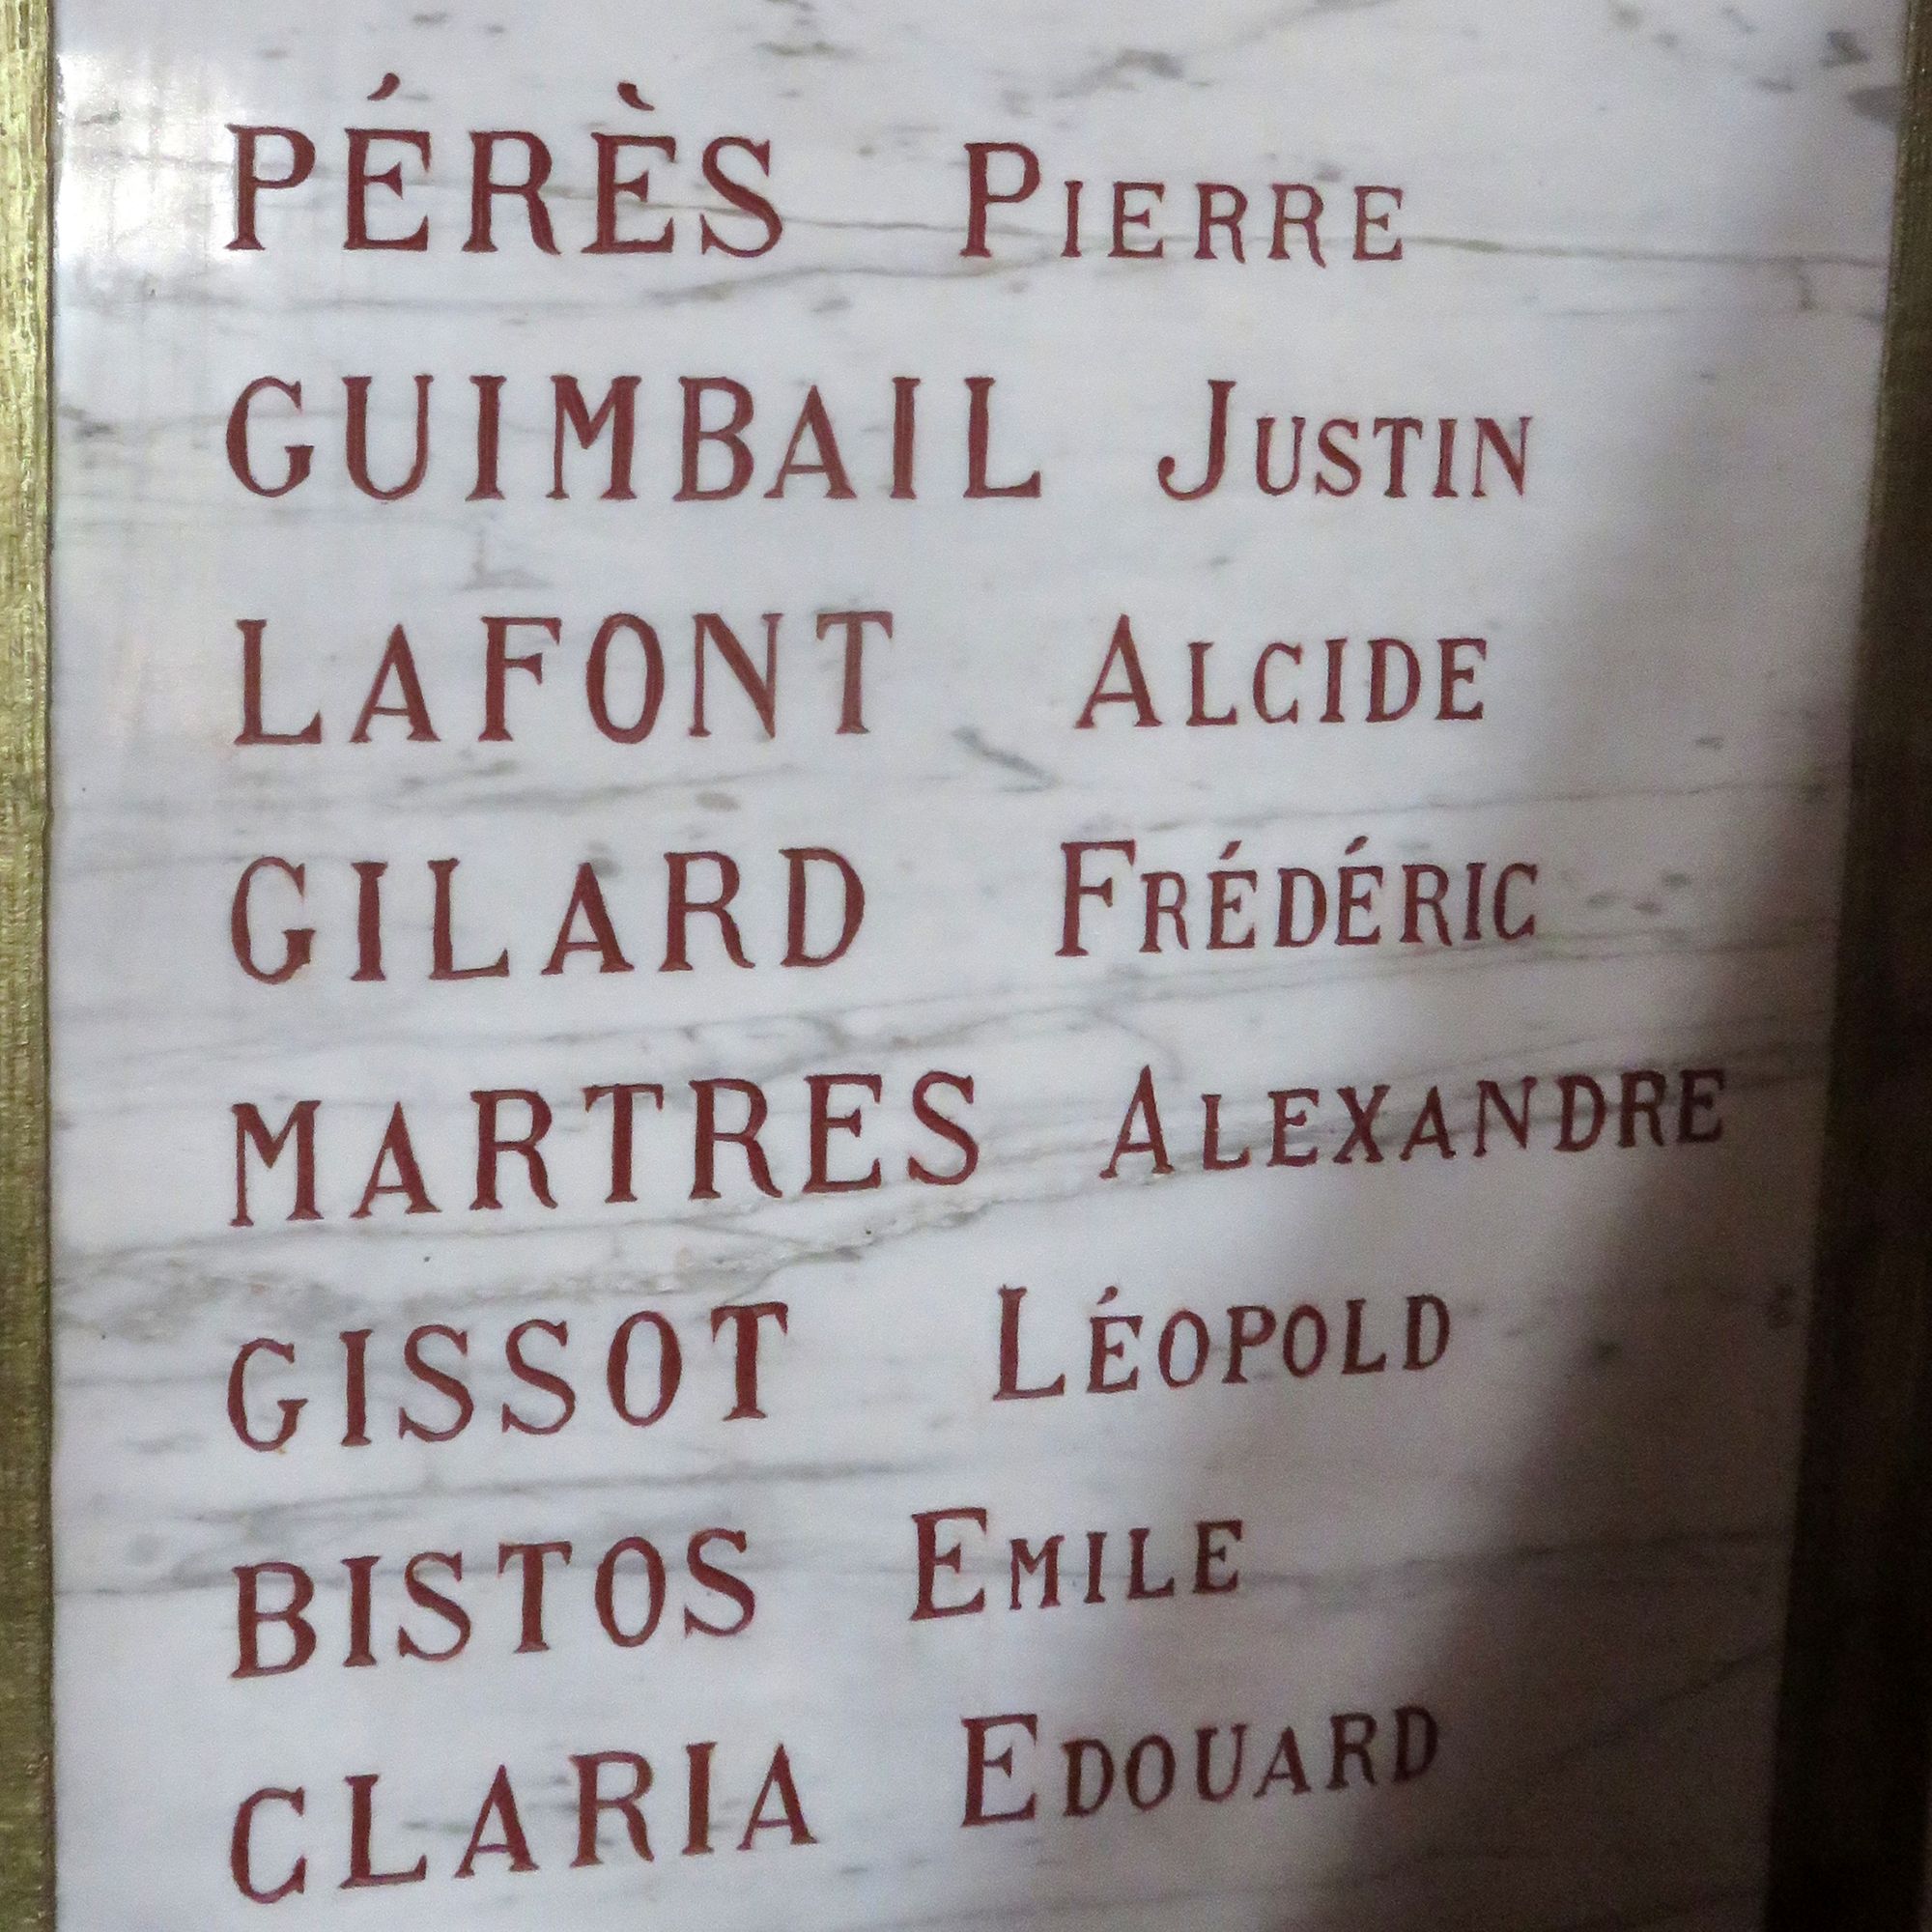 PÉRÈS PIERRE
GUIMBAIL JUSTIN
LAFONT ALCIDE
GILARD FRÉDÉRIC
MARTRES ALEXANDRE
GISSOT LÉOPOLD
BISTOS EMILE
CLARIA EDOUARD